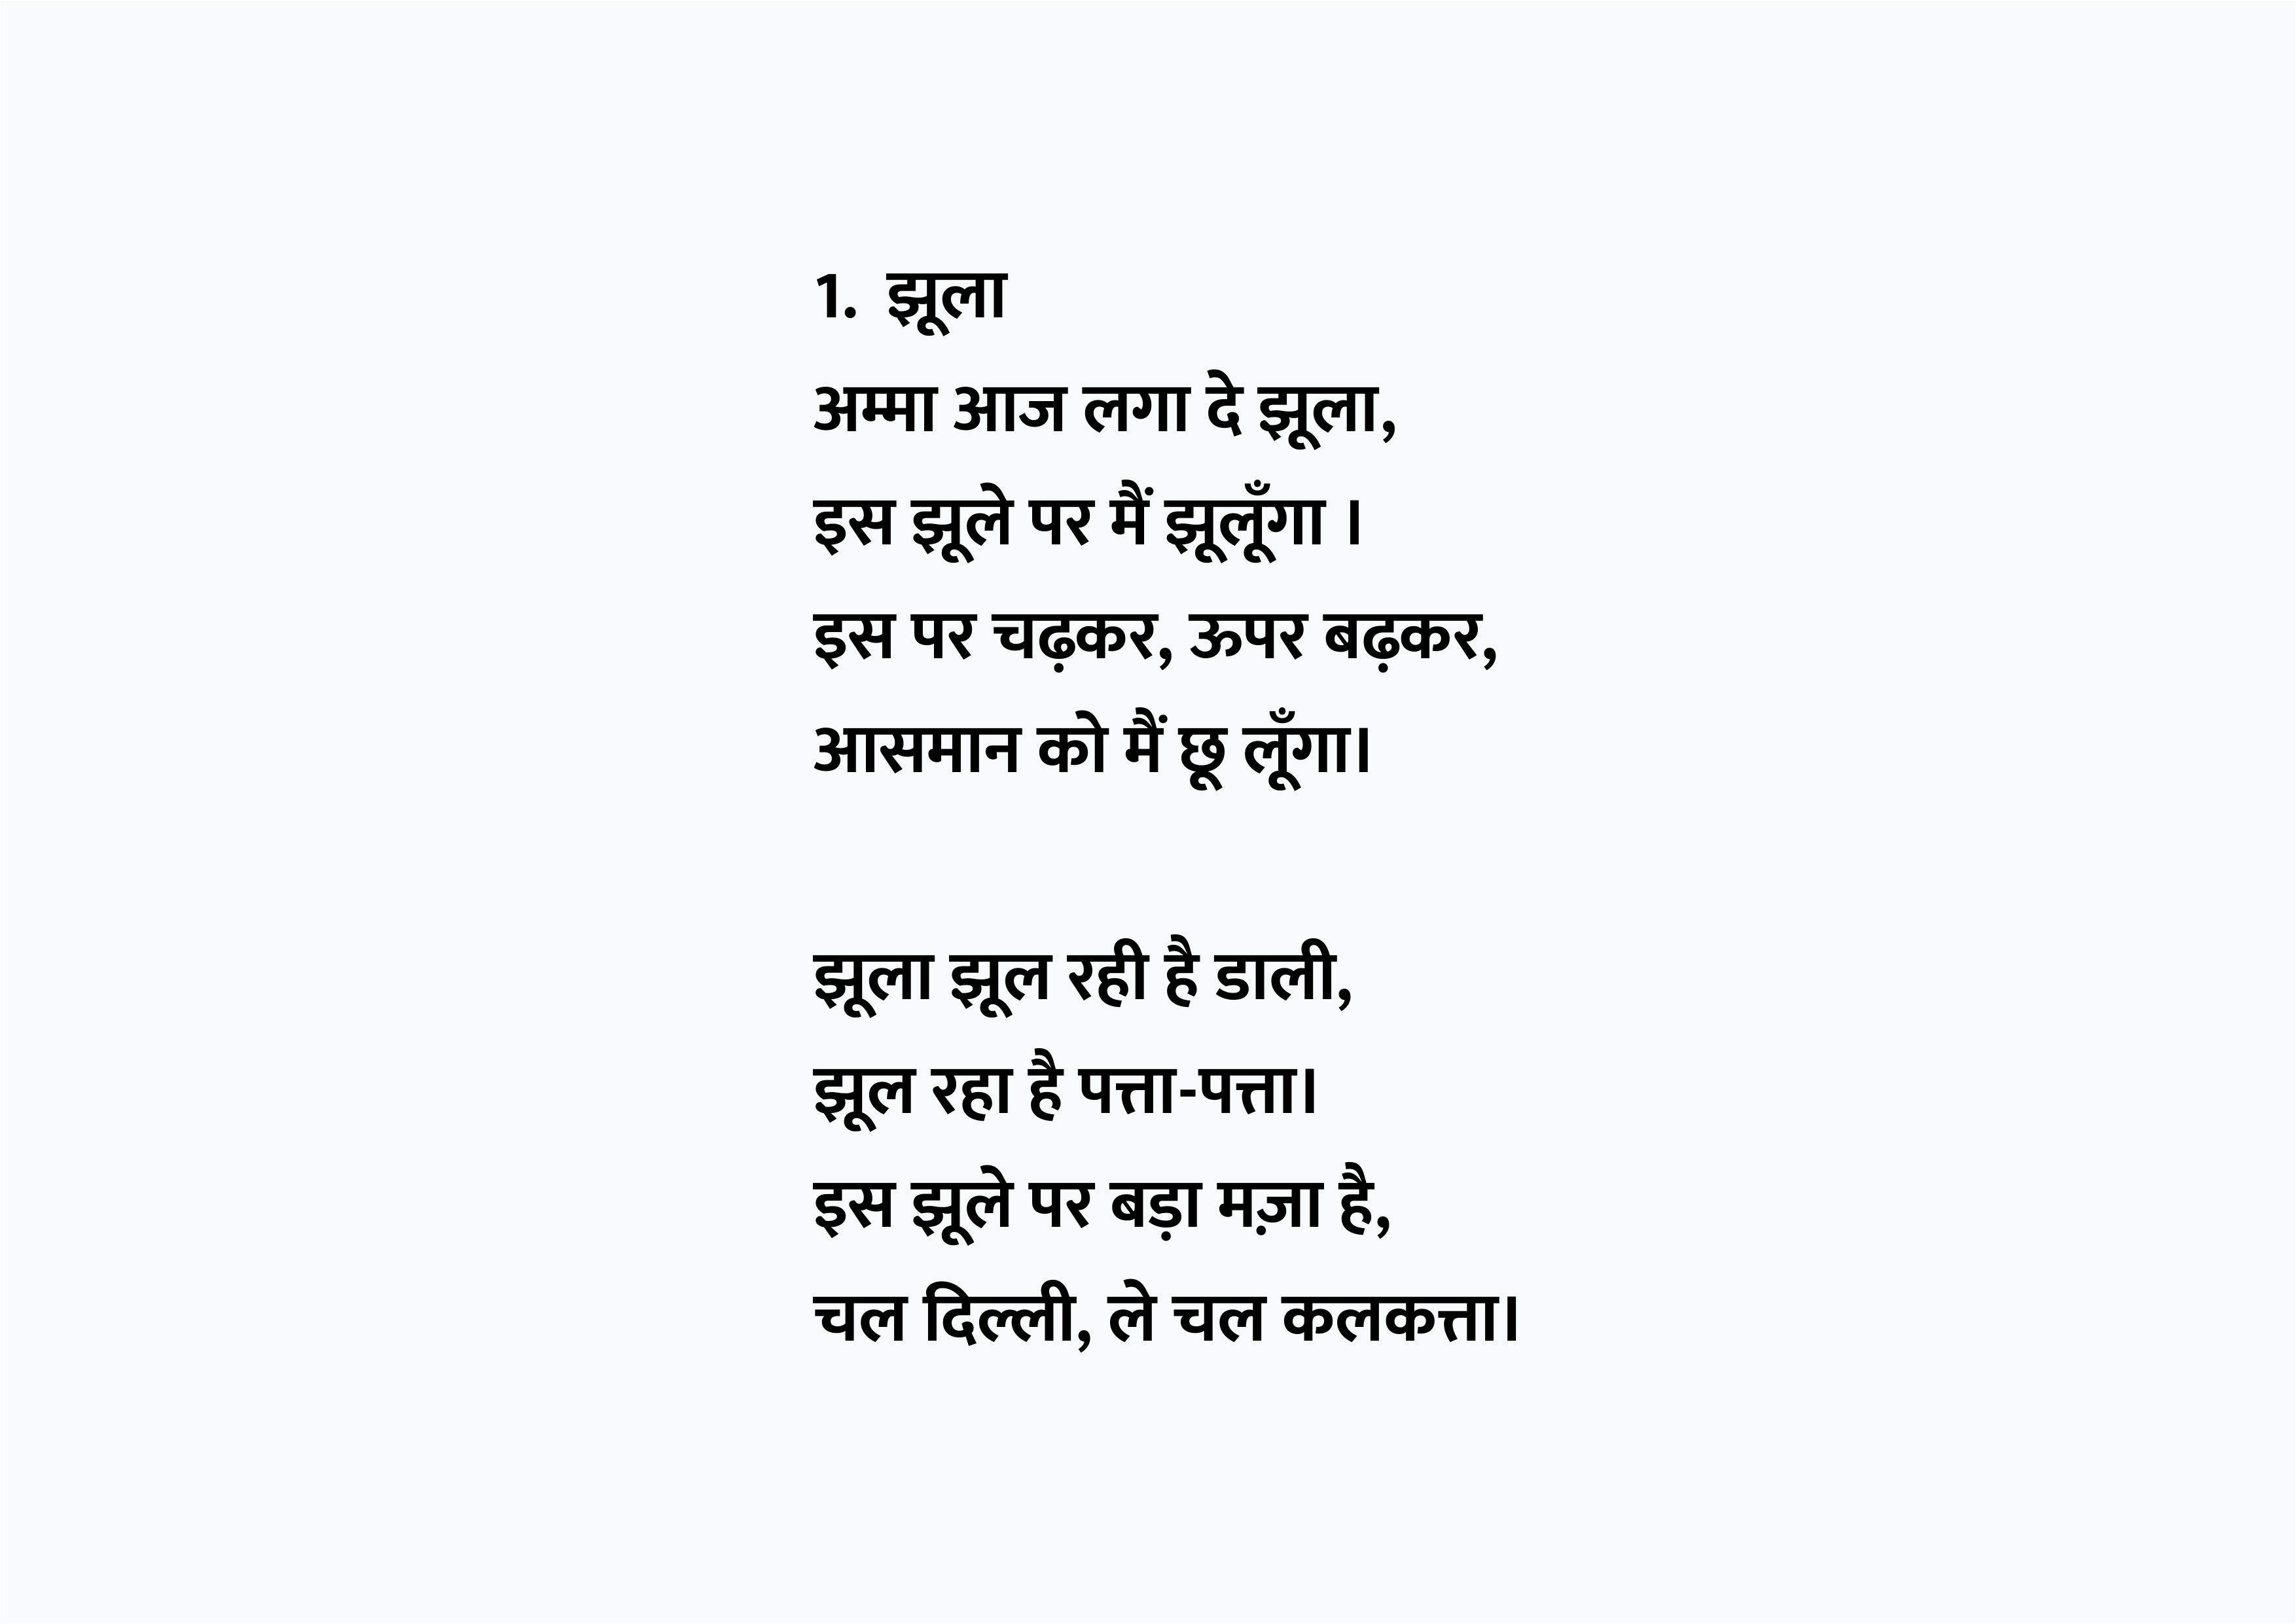 1. झूला
अम्मा आज लगा दे झूला,
इस झूले पर मैं झूलूँगा ।
इस पर चढ़कर, ऊपर बढ़कर,
आसमान को मैं छू लूँगा।
झूला झूल रही है डाली,
झूल रहा है पत्ता-पत्ता।
इस झूले पर बड़ा मज़ा है,
चल दिल्ली, ले चल कलकत्ता।